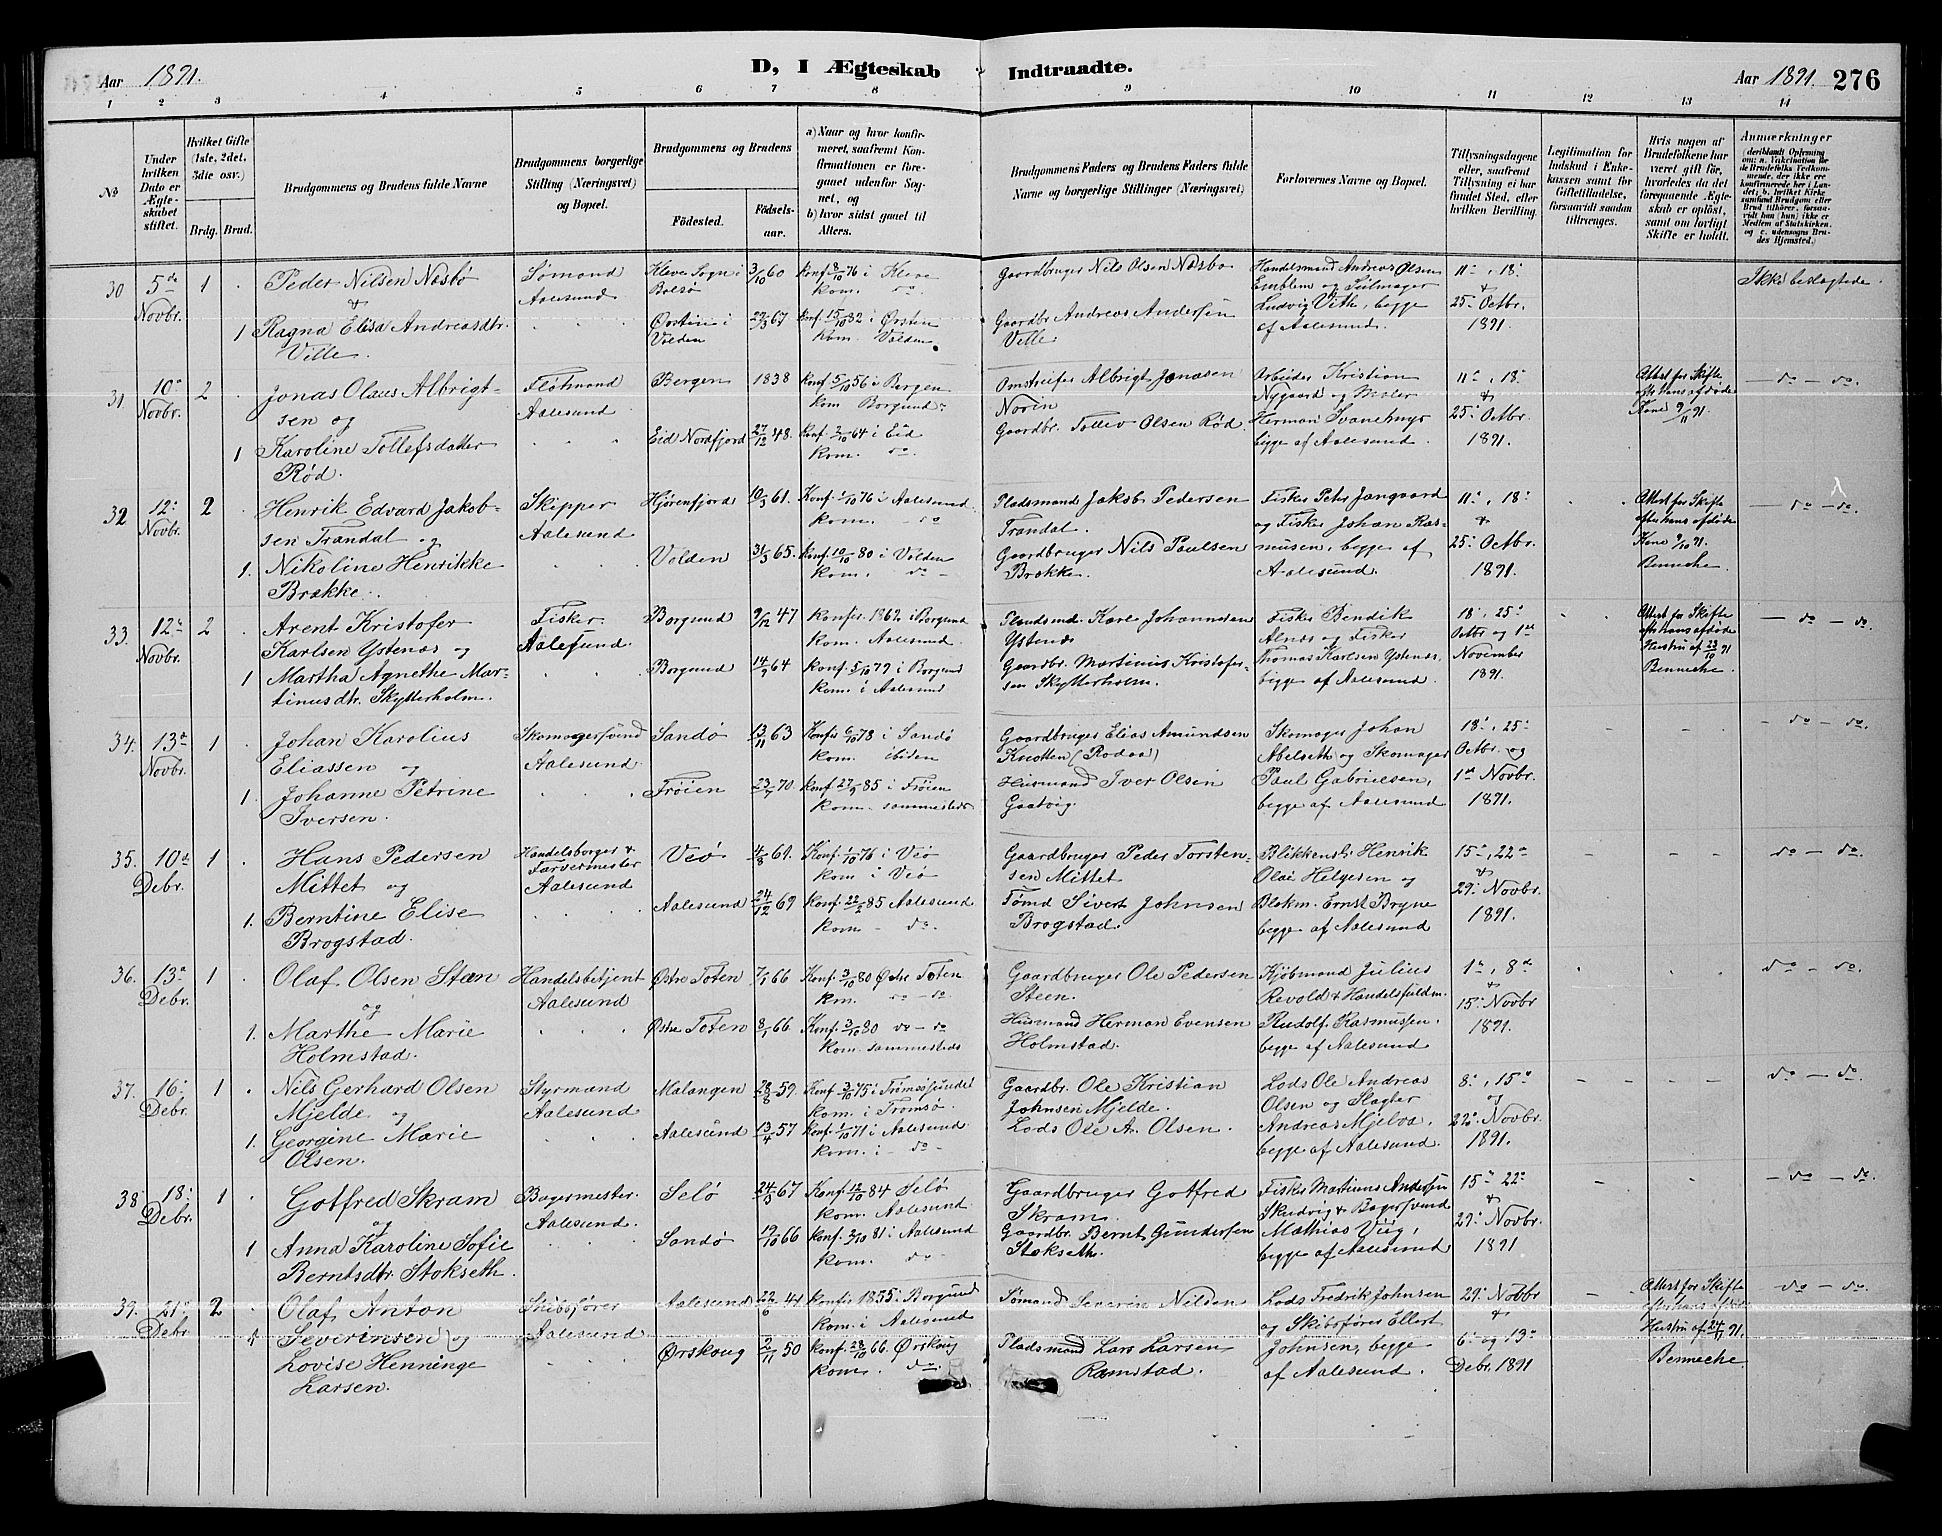 Aar 1891.
D, I Ægteskab Indtraadte.
Aar 1891. 276
1 2 3 4 5 6 7 8 9 10 11 12 13 14
No
Under hvilken Dato er Ægteskabet stiftet.
Hvilket Gifte (1ste, 2det, 3die osv.)
Brdg. Brud.
Brudgommens og Brudens fulde Navne
Brudgommens borgerlige Stilling (Næringsvei) og Bopæl.
Brudgommens og Brudens
Fødested. Fødselsaar.
a) Naar og hvor konfirmeret, saafremt Konfirmationen er foregaaet udenfor Sognet, og
b) hvor sidst gaaet til Alters.
Brudgommens Faders og Brudens Faders fulde Navne og borgerlige Stillinger (Næringsvei)
Forlovernes Navne og Bopæl.
Tillysningsdagene eller, saafremt Tillysning ei har fundet Sted, efter hvilken Bevilling.
Legitimation for Indskud i Enkekassen samt for Giftetilladelse, forsaavidt saadan tiltrænges.
Hvis nogen af Brudefolkene har været gift før, hvorledes da det foregaaende Ægteskab er opløst, samt om lovligt Skifte er holdt.
Anmærkninger
(deriblandt Oplysning om: a. Vakcination for de Brudefolks Vedkommende, der ikke ere konfirmerede her i Landet; b. hvilket Kirkesamfund Brudgom eller Brud tilhører, forsaavidt han (hun) ikke er Medlem af Statskirken, og c. udensogns Brudes Hjemsted.)
30 5te Novbr. 1
Peder Nilsen Næsbø
&
1 Ragna Elisa Andreasdtr.
Ville.
Sømand
Aalesund
Kleve Sogn i
Bolsø
3/10 60
Ørsten i
Volden
29/3 67
Konf 8/10 76 i Kleve
kom. do
Konf. 15/10 82 i Ørsten
kom. Volden
Gaardbruger Nils Olsen Næsbø
Gaardbr Andreas Andersen
Ville
Handelsmand Andreas Olsen
Emblem og Seilmager
Ludvig Vith, begge
af Aalesund.
11te, 18
&
25 Octbr.
1891.
Ikke beslægtede
31. 10 Novbr. 2
Jonas Olaus Albrigt-
sen og
1 Karoline Tollefsdatter
Rød.
Fløtmand
Aalesund
Bergen 1838
Eid Nordfjord 27/12 48.
Konf 5/10 56 i Bergen
kom Borgund
Konf. 2/10 64 i Eid
kom. do
Omstreifer Albrigt Jonasen
Norin
Gaardbr. Tollev Olsen Rød.
Arbeider Kristian
Nygaard og Maler
Herman Svanemyr
begge af Aalesund.
11, 18
&
25 Octbr.
1891.
Attest for Skifte
eft hans afdøde
Kone 9/11 91.
do — do.
32 12 Novbr. 2
Henrik Edvard Jakob-
sen Trandal og
1. Nikoline Henrikke
Brække.
Skipper
Aalesund
Hjørenfjord 10/3 61.
Volden 31/3 65.
Konf. 1/10 76 i Aalesund
kom. — do
Konf. 10/10 80 i Volden
kom. do
Pladsmand Jakob Pedersen
Trandal.
Gaardbruger Nils Paulsen
Brække.
Fisker Peter Jangaard
og Fisker Johan Ras-
musen, begge af
Aalesund.
11, 18
&
25 Octbr.
1891.
Attest for Skifte
efter hans afdøde
Kone 9/10 91.
Benneche
do — do
33 12te Novbr. 2
Arent Kristofer
Karlsen Ystenæs og
1 Martha Agnethe Mar-
tinusdtr. Skytterholm.
Fisker
Aalesund
Borgund 9/12 47
Borgund 14/9 64
Konfir. 1862 i Borgund
kom. Aalesund.
Konf. 5/10 79 i Borgund
kom. i Aalesund
Pladsmd. Karl Johannsen
Ystenæs
Gaardbr. Martinus Kristofer-
sen Skytterholm.
Fisker Bendik
Alnæs og Fisker
Thomas Karlsen Ystenæs,
begge af Aalesund.
18, 25
Octbr og 1ste
November
1891.
Attest for Skifte
efter hans afdøde
Hustru af 23/10 91
Benneche
do — do.
34. 13de Novbr. 1
Johan Karolius
Eliassen og
1. Johanne Petrine
Iversen.
Skomagersvend
Aalesund
Sandø 13/11 63
Frøien 23/7 70.
Konfir 6/10 78 i Sandø
kom. ibiden
Konf 27/9 85 i Frøien
kom. sammesteds
Gaardbruger Elias Amundsen
Knotten (Rodaa)
Husmand Iver Olsen
Gaasvig
Skomager Johan
Abelseth og Skomager
Paul Gabrielsen,
begge af Aalesund
18, 25
Octbr. og
1ste Novbr.
1891.
do — do
35. 10de Debr. 1
Hans Pedersen
Mittet og
1. Berntine Elise
Brogstad.
Handelsborger &
Farvermester
Aalesund
Veø 4/8 61.
Aalesund 24/12 69
Konf. 1/10 76 i Veø
kom i Veø
Konf 22/2 85 Aalesund
kom — do.
Gaardbruger Peder Torsten-
sen Mittet
Tømd Sivert Johnsen
Brogstad.
Blikkensl. Henrik
Olai Helgesen og
Blokm. Ernst Bryne
begge af Aalesund
15, 22
&
29 Novbr.
1891.
do — do.
36. 13de Debr. 1
Olaf Olsen Steen
og
1. Marthe Marie
Holmstad.
Handelsbetjent
Aalesund
Østre Toten 7/1 66
Østre Toten 8/1 66.
Konf. 3/10 80 Østre Toten
km. do — do
Konf. 3/10 80 do — do
kom. sammesteds
Gaardbruger Ole Pedersen
Steen.
Husmand Herman Evensen
Holmstad.
Kjøbmand Julius
Revold & Handelsfuldm.
Rudolf Rasmussen.
begge af Aalesund
1, 8de
&
15 Novbr
1891.
do — do.
37. 16 Debr. 1
Nils Gerhard Olsen
Mjelde og
1. Georgine Marie
Olsen.
Styrmand
Aalesund
Malangen 28/8 59.
Aalesund 13/4 57
Konf 3/10 75 i Tromsøsundet
kom. i Tromsø.
Konf. 1/10 71 i Aalesund
kom. i — do
Gaardbr. Ole Kristian
Johnsen Mjelde.
Lods Ole A. Olsen.
Lods Ole Andreas
Olsen og Slagter
Andreas Mjelva,
begge af Aalesund.
8, 15
og
22 Novbr.
1891.
do — do.
38. 18 Debr. 1
Gotfred Skram
og
1 Anna Karoline Sofie
Berntsdtr. Stokseth.
Bagermester
Aalesund.
Selø 24/3 67
Sandø 19/10 66
Konf. 12/10 84 Selø
kom. Aalesund
Konf. 2/10 81 i Aalesund
kom. do
Gaardbruger Gotfred
Skram.
Gaardbr. Bernt Gundersen
Stokseth.
Fisker Martinus Andersen
Skudvig & Bagersvend
Mathias Viig,
begge af Aalesund
15, 22
&
29 Novbr.
1891
do — do.
39. 21 Debr. 2
Olaf Anton
1 Severinsen og
Lovise Henninge
Larsen.
Skibsfører
Aalesund
Aalesund 22/6 41
Ørskoug 2/11 50
Konfir 1855 i Borgund
kom. i Aalesund
Konf. 28/10 66. Ørskoug
kom. do.
Tømand Severin Nilsen
Pladsmand Lars Larsen
Ramstad.
Lods Fredrik Johnsen
og Skibsfører Ellert
Johnsen, begge
af Aalesund.
29 Novbr
&
6 og 13
Debr. 1891
Attest for Skifte
efter hans afdøde
Hustru af 24/11 91.
Benneche
do — do.